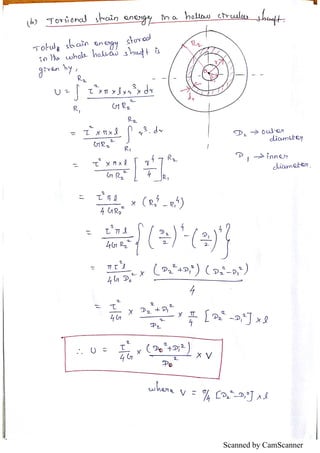 (b) Torsional strain energy in a hollow circular shaft.
Total strain energy stored
in the whole hollow shaft is
given by,
U = ∫_{R₁}^{R₂} τ² × π × l × r³ × dr / G R₂²
= τ² × π × l / G R₂² ∫_{R₁}^{R₂} r³. dr
= τ² × π × l / G R₂² [ r⁴ / 4 ]_{R₁}^{R₂}
= τ² π l / 4 G R₂² × (R₂⁴ - R₁⁴)
= τ² π l / 4 G R₂² { (D₂/2)⁴ - (D₁/2)⁴ }
= π τ² l / 4 G D₂² × (D₂² + D₁²) (D₂² - D₁²) / 4
= τ² / 4 G × D₂² + D₁² / D₂² × π/4 [D₂² - D₁²] × l
∴ U = τ² / 4 G × (D₀² + D₁²) / D₀² × V
where V = π/4 [D₂² - D₁²] × l
R₂
r
D₂ → outer
diameter
D₁ → inner
diameter.
Scanned by CamScanner